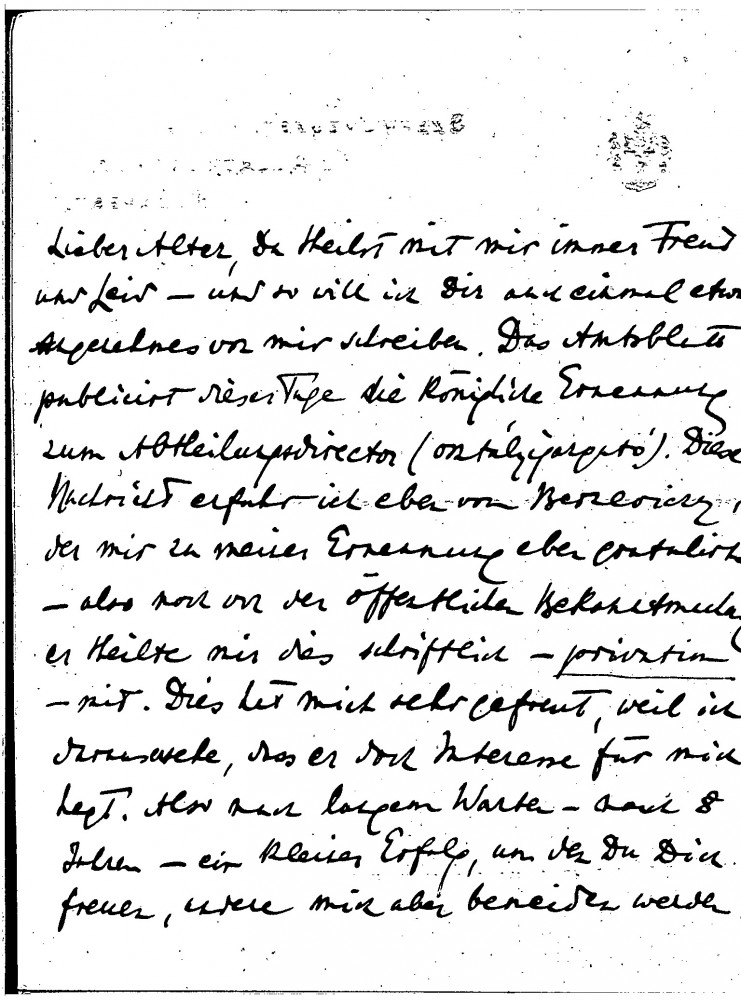 Lieber Alter, Du theilst mit mir immer Freud
und Leid – und so will ich Dir auch einmal etwas
Angenehmes von mir schreiben. Das Amtsblatt
publicirt dieser Tage die Königliche Ernennung
zum Abtheilungsdirector (osztályigazgató). Diese
Nachricht erfuhr ich eben von Berzeviczy,
der mir zu meiner Ernennung eben gratulirte
– also noch vor der öffentlichen Bekanntmachung
er theilte mir dies schriftlich – privatim
– mit. Dies hat mich sehr gefreut, weil ich
daraus sehe, dass er doch Interesse für mich
hegt. Also nach langem Warten – nach 8
Jahren – ein kleiner Erfolg, um den Du Dich
freuen, andere mich aber beneiden werden